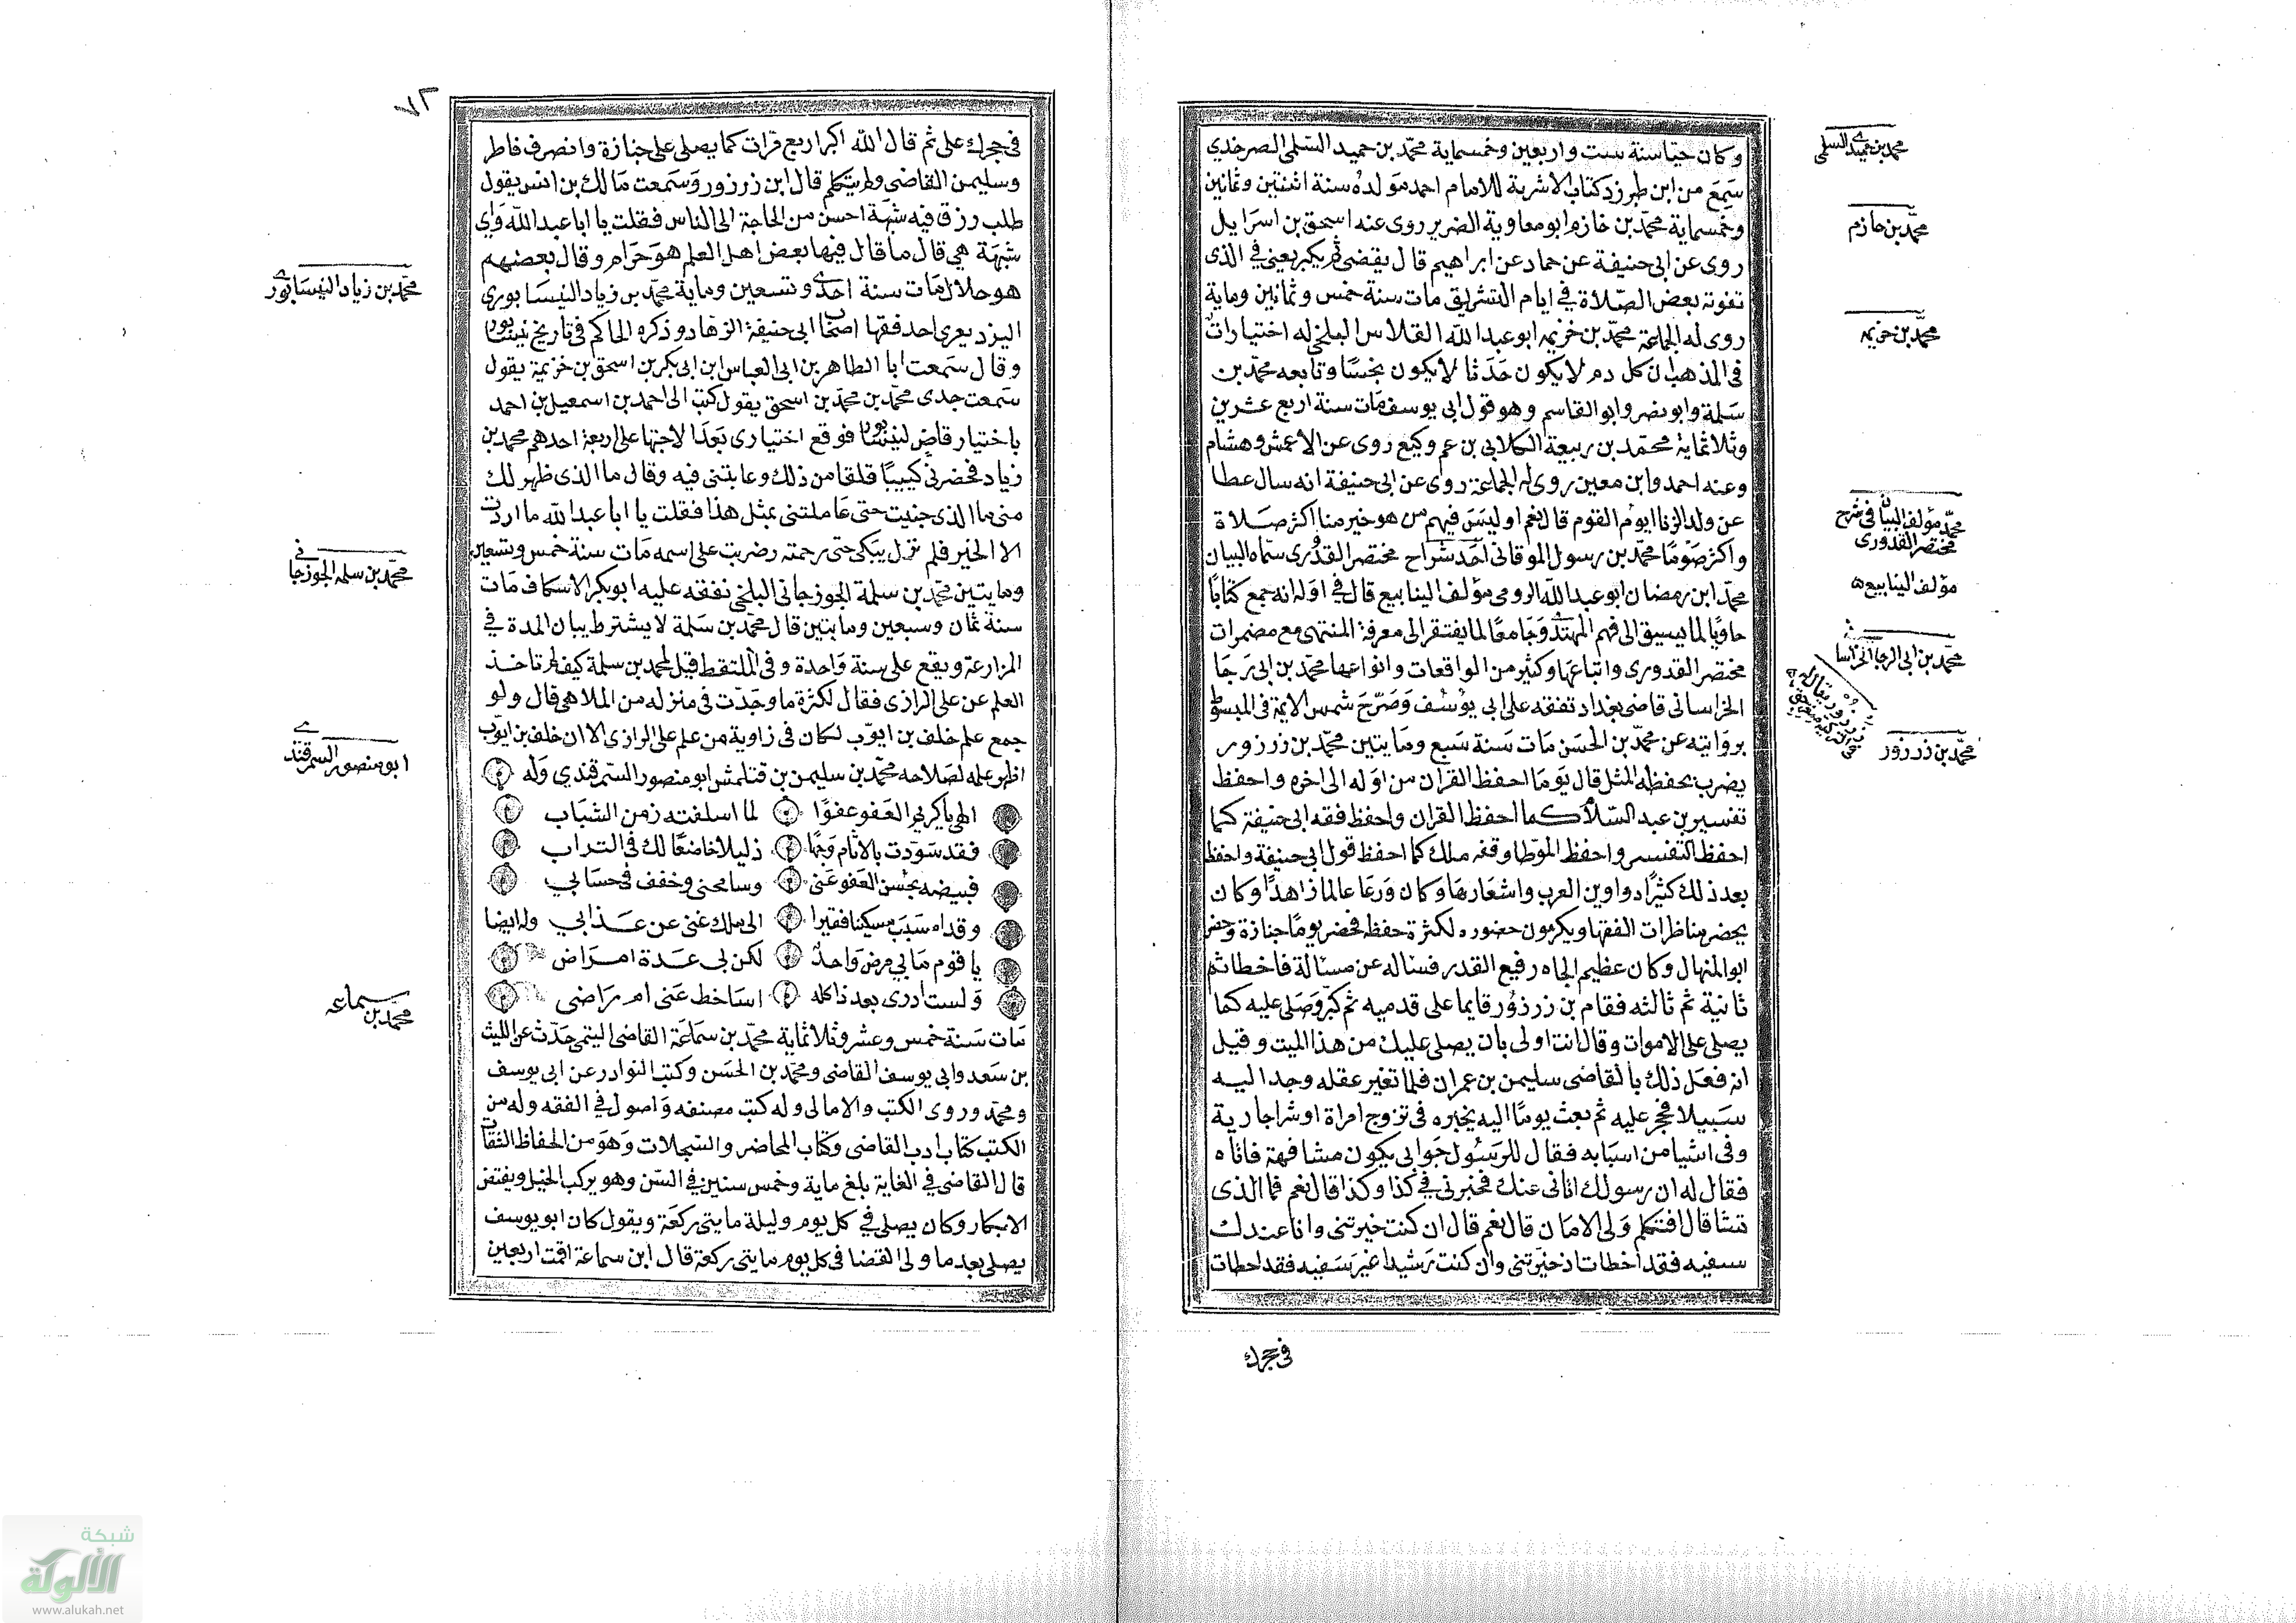 محمد بن حميد السلمي
محمد بن خازم
محمد بن خزيمه
محمد مؤلف البيان في شرح
مختصر القدوري
مؤلف الينابيع
محمد بن ابي الرجا الخراسا
محمد بن زرزور
وكان حيا سنة ست واربعين وخمسماية محمد بن حميد السلمي الصرخدي
سمع من ابن طبرزد كتاب الاشربة للامام احمد مولده سنة اثنتين وثمانين
وخمسماية محمد بن خازم ابو معاوية الضرير روى عنه اسحق بن اسرايل
روى عن ابي حنيفة عن حماد عن ابراهيم قال يقضي ثم يكبر يعني في الذي
تفوته بعض الصلاة في ايام التشريق مات سنة خمس وثمانين وماية
روى له الجماعة محمد بن خزيمه ابو عبد الله القلاس البلخي له اختيارات
في المذهب ان كل دم لا يكون حدثا لا يكون نجسا وتابعه محمد بن
سلمة وابو نصر وابو القاسم وهو قول ابي يوسف مات سنة اربع عشرين
وثلاثماية محمد بن ربيعة الكلابي بن عم وكيع روى عن الاعمش وهشام
وعنه احمد وابن معين روى له الجماعة روى عن ابي حنيفة انه سال عطا
عن ولد الزنا ايوم القوم قال نعم اوليس فيهم من هو خير منا اكثر صلاة
واكثر صوما محمد بن رسول الموقاني احد شراح مختصر القدوري سماه البيان
محمد ابن رمضان ابو عبد الله الرومي مؤلف الينابيع قال في اوله انه جمع كتابا
حاويا لما يسبق الى فهم المهتدي وجامعا لما يفتقر الى معرفة المنتهي مع مضمرات
مختصر القدوري واتباعها وكثير من الواقعات وانواعها محمد بن ابي رجا
الخراساني قاضي بغداد تفقه على ابي يوسف وصرح شمس الايمة في المبسوط
بروايته عن محمد بن الحسن مات سنة سبع ومايتين محمد بن زرزور
يضرب بحفظه المثل قال يوما احفظ القران من اوله الى اخره واحفظ
تفسير بن عبد السلام كما احفظ القران واحفظ فقه ابي حنيفة كما
احفظ التفسير واحفظ الموطا وفقه ملك كما احفظ قول ابي حنيفة واحفظ
بعد ذلك كثيرا دواوين العرب واشعارها وكان ورعا عالما زاهدا وكان
يحضر مناظرات الفقها ويكرمون حضوره لكثرة حفظه فحضر يوما جنازة وحضر
ابو المنهال وكان عظيم الجاه رفيع القدر فساله عن مسالة فاخطا ثم
ثانية ثم ثالثه فقام بن زرزور قايما على قدميه ثم كبر وصلى عليه كما
يصلي على الاموات وقال انت اولى بان يصلى عليك من هذا الميت وقيل
انه فعل ذلك بالقاضي سليمن بن عمران فلما تغير عقله وجد اليه
سبيلا فحجر عليه ثم بعث يوما اليه يخيره في تزوج امراة او شرا جارية
وفي اشيا من اسبابه فقال للرسول جوابي يكون مشافهة فاتاه
فقال له ان رسولك اتاني عنك فخبرني في كذا وكذا قال نعم فما الذي
تشا قال افتكلم ولي الامان قال نعم قال ان كنت خيرتني وانا عندك
سفيه فقد اخطات اذ خيرتني وان كنت رشيدا غير سفيه فقد اخطات
في حجرك
٧٢
في حجرك علي ثم قال الله اكبر اربع مرات كما يصلي على جنازة وانصرف فاطر
وسليمن القاضي ولم يتكلم قال ابن زرزور وسمعت مالك بن انس يقول
طلب رزق فيه شبهة احسن من الحاجة الى الناس فقلت يا ابا عبد الله واي
شبهة هي قال ما قال فيها بعض اهل العلم هو حرام وقال بعضهم
هو حلال مات سنة احدى وتسعين وماية محمد بن زياد النيسابوري
احد فقها اصحاب ابي حنيفة الزهاد وذكره الحاكم في تاريخ نيسابور
وقال سمعت ابا الطاهر بن ابي العباس ابن ابي بكر بن اسحق بن خزيمة يقول
سمعت جدي محمد بن محمد بن اسحق يقول كتب الى احمد بن اسمعيل بن احمد
باختيار قاض لنيسابور فوقع اختياري بعد الاجتهاد على اربعة احدهم محمد بن
زياد فحضرني كييبا قلقا من ذلك وعابتني فيه وقال ما الذي ظهر لك
مني ما الذي جنيت حتى عاملتني بمثل هذا فقلت يا ابا عبد الله ما اردت
الا الخير فلم تزل يبكي حتى رحمته وضربت على اسمه مات سنة خمس وتسعين
ومايتين محمد بن سلمة الجوزجاني البلخي تفقه عليه ابو بكر الاسكاف مات
سنة ثمان وسبعين ومايتين قال محمد بن سلمة لا يشترط بيان المدة في
المزارعة ويقع على سنة واحدة وفي الملتقط قيل لمحمد بن سلمة كيف لم تاخذ
العلم عن علي الرازي فقال لكثرة ما وجدت في منزله من الملاهي قال ولو
جمع علم خلف بن ايوب لكان في زاوية من علم علي الرازي الا ان خلف بن ايوب
اظهر علمه لصلاحه محمد بن سليمن بن قتلمش ابو منصور السمرقندي وله
الهي يا كريم العفو عفوا لما اسلفته زمن الشباب
فقد سودت بالاثام وجها ذليلا خاضعا لك في التراب
فبيضه بحسن العفو عني وسامحني وخفف في حسابي
مسكينا فقيرا غني عن عذابي وله ايضا
يا قوم ما بي مرض واحد لكن بي عدة امراض
ولست ادري بعد ذا كله اساخط عني ام راضي
مات سنة خمس وعشر وثلاثماية محمد بن سماعة القاضي التيمي حدث عن الليث
بن سعد وابي يوسف القاضي ومحمد بن الحسن وكتب النوادر عن ابي يوسف
ومحمد وروى الكتب والامالي وله كتب مصنفه واصول في الفقه وله من
الكتب كتاب ادب القاضي وكتاب المحاضر والسجلات وهو من الحفاظ الثقات
قال القاضي في الغاية بلغ ماية وخمس سنين في السن وهو يركب الخيل ويفتض
الابكار وكان يصلي في كل يوم وليلة مايتي ركعة ويقول كان ابو يوسف
يصلي بعد ما ولي القضا في كل يوم مايتي ركعة قال ابن سماعة اقمت اربعين
محمد بن زياد النيسابوري
محمد بن سلمه الجوزجاني
ابو منصور السمرقندي
محمد بن سماعه
شبكة
الألوكة
www.alukah.net